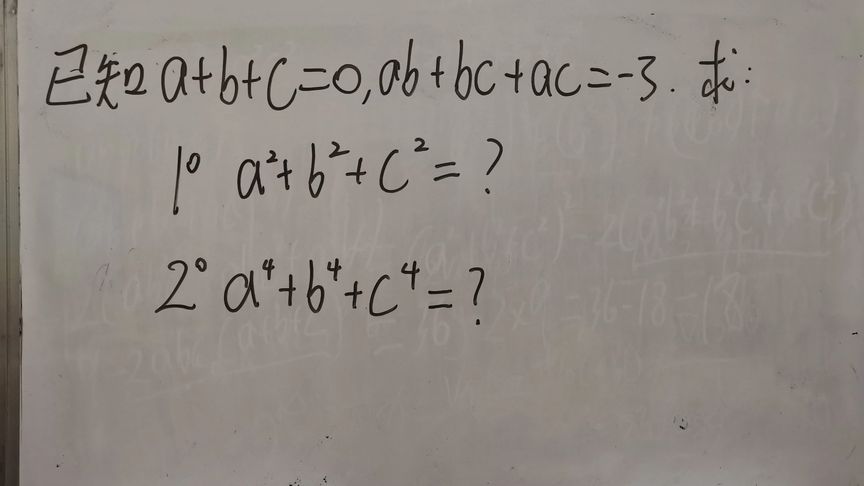 已知a+b+c=0,ab+bc+ac=-3. 求:
1° a²+b²+c²=?
2° a⁴+b⁴+c⁴=?